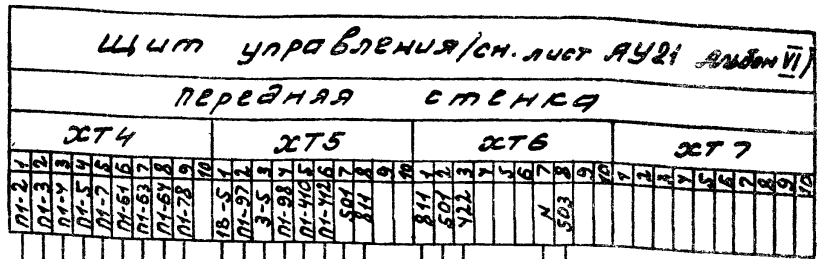 Щит управления/см. лист АУ21 Альбом VI/
передняя стенка
ХТ4 ХТ5 ХТ6 ХТ7
1 2 3 4 5 6 7 8 9 10 1 2 3 4 5 6 7 8 9 10 1 2 3 4 5 6 7 8 9 10 1 2 3 4 5 6 7 8 9 10
П1-2 П1-3 П1-4 П1-5 П1-7 П1-61 П1-63 П1-64 П1-78 1В-5 П1-97 3-5 П1-98 П1-410 П1-412 501 811 811 501 422 N 503